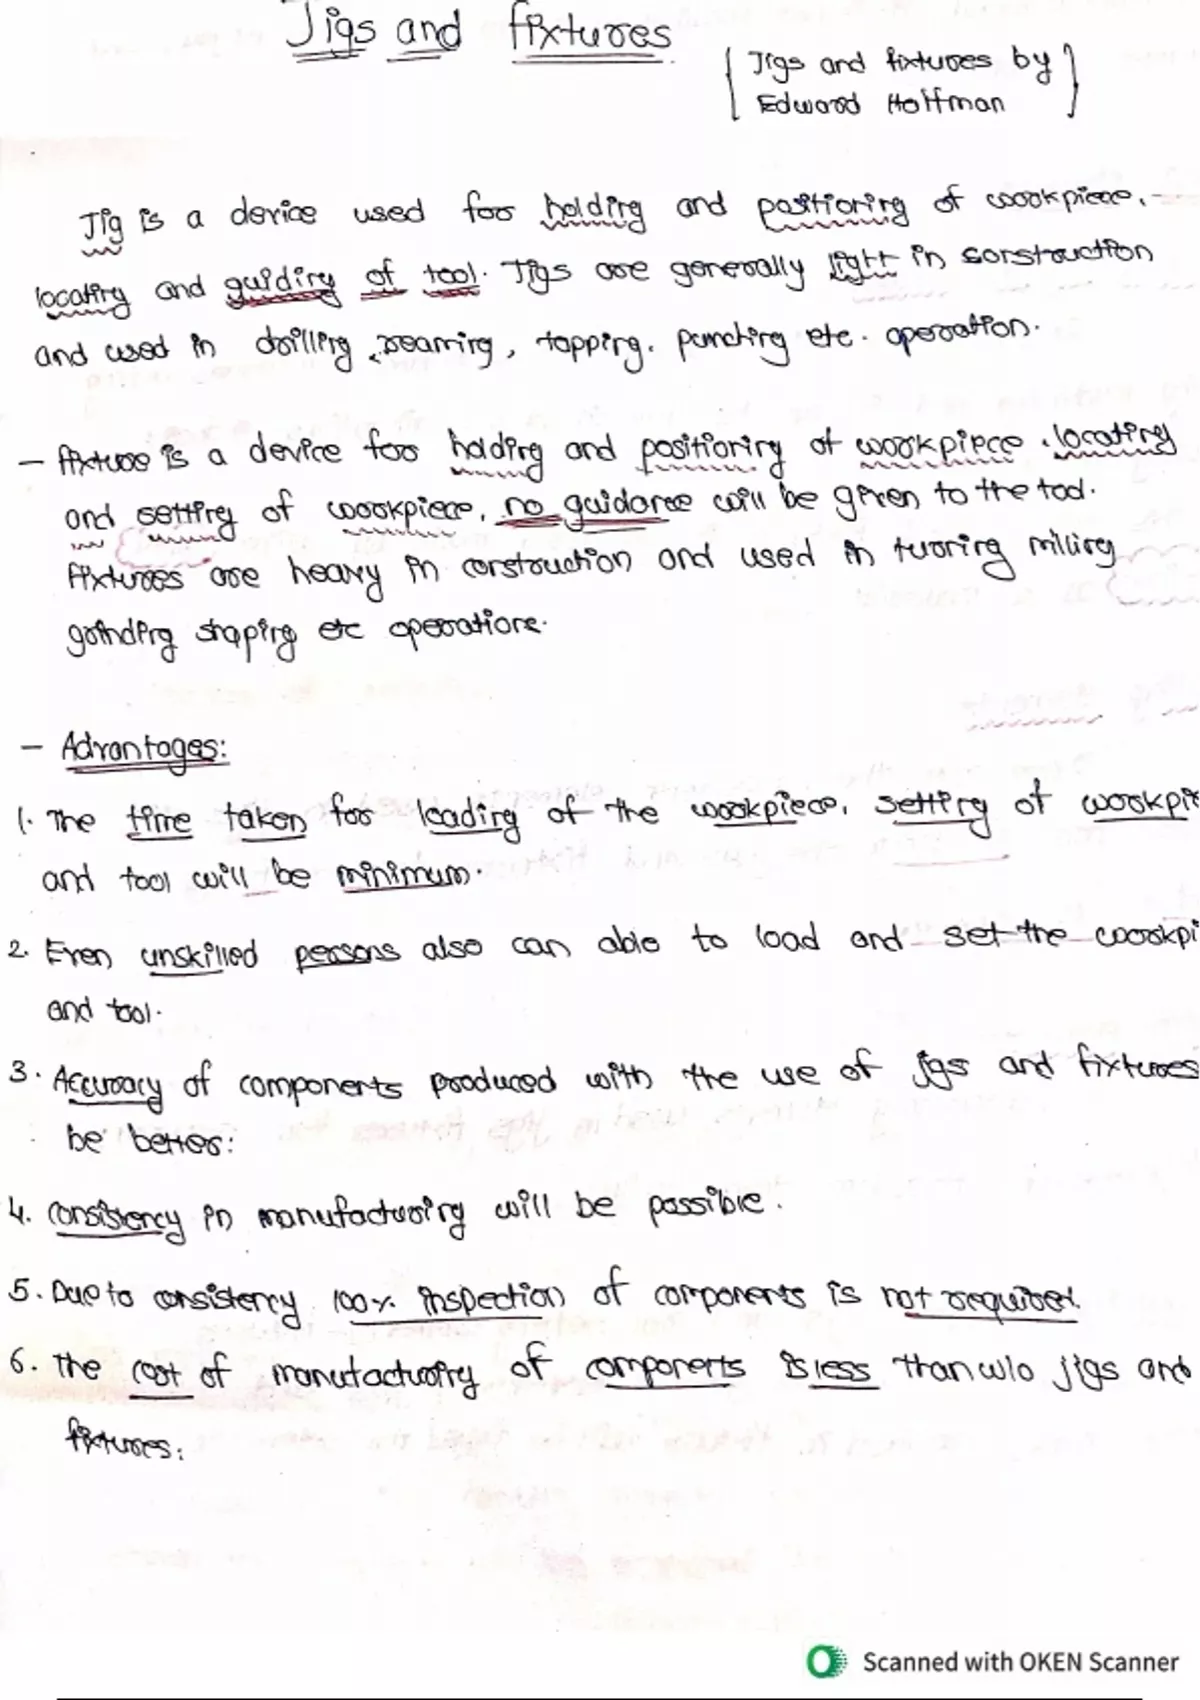 Jigs and fixtures
Jigs and fixtures by
Edward Hoffman
Jig is a device used for holding and positioning of workpiece,
locating and guiding of tool. Jigs are generally light in construction
and used in drilling, reaming, tapping, punching etc. operation.
- fixture is a device for holding and positioning of workpiece, locating
and setting of workpiece, no guidance will be given to the tool.
fixtures are heavy in construction and used in turning milling
grinding shaping etc operations.
- Advantages:
1. The time taken for loading of the workpiece, setting of workpie
and tool will be minimum.
2. Even unskilled persons also can able to load and set the workpi
and tool.
3. Accuracy of components produced with the use of jigs and fixtures
be better.
4. Consistency in manufacturing will be possible.
5. Due to consistency 100% inspection of components is not required.
6. The cost of manufacturing of components is less than w/o jigs and
fixtures.
Scanned with OKEN Scanner